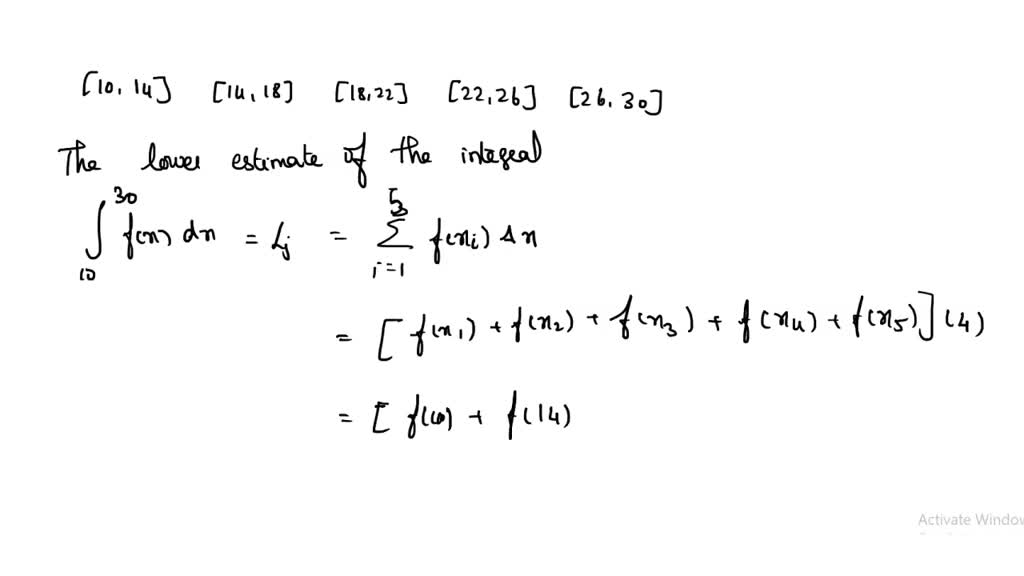 [10, 14] [14, 18] [18, 22] [22, 26] [26, 30]
The lower estimate of the integral
∫₁₀³⁰ f(x) dx = L₅ = Σᵢ₌₁⁵ f(xᵢ) Δx
= [f(x₁) + f(x₂) + f(x₃) + f(x₄) + f(x₅)] (4)
= [f(10) + f(14)
Activate Window